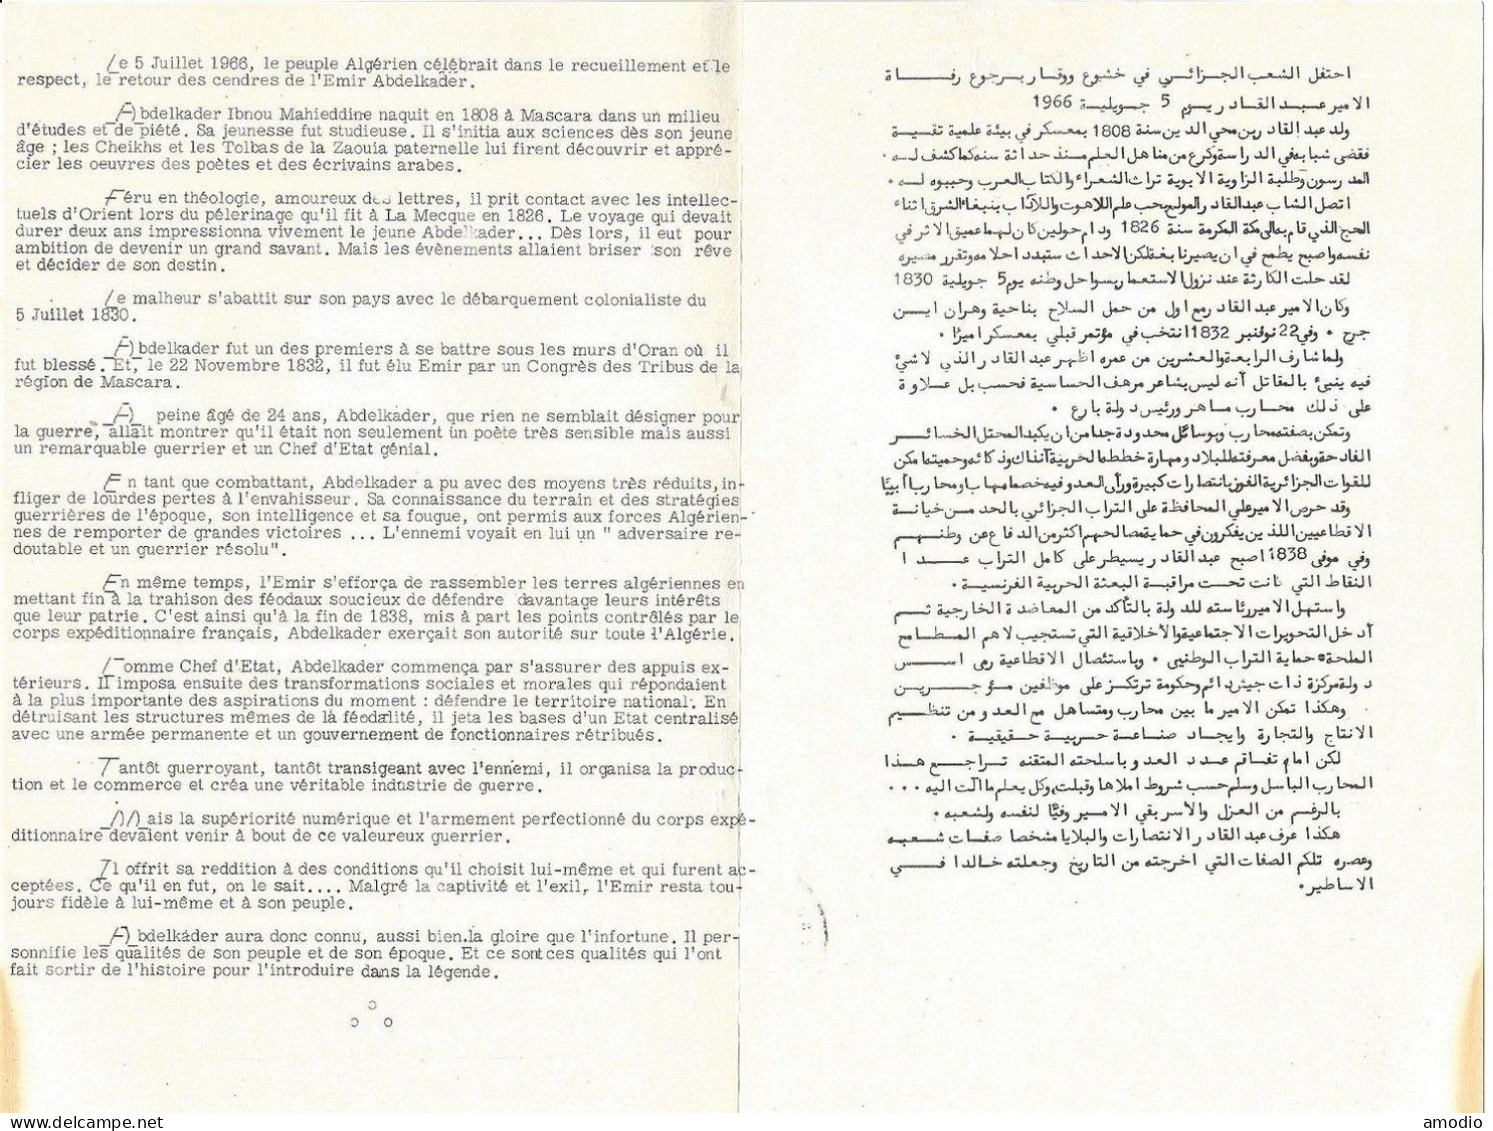 Le 5 Juillet 1966, le peuple Algérien célébrait dans le recueillement et le
respect, le retour des cendres de l'Emir Abdelkader.
Abdelkader Ibnou Mahieddine naquit en 1808 à Mascara dans un milieu
d'études et de piété. Sa jeunesse fut studieuse. Il s'initia aux sciences dès son jeune
âge ; les Cheikhs et les Tolbas de la Zaouia paternelle lui firent découvrir et appré-
cier les oeuvres des poètes et des écrivains arabes.
Féru en théologie, amoureux des lettres, il prit contact avec les intellec-
tuels d'Orient lors du pélerinage qu'il fit à La Mecque en 1826. Le voyage qui devait
durer deux ans impressionna vivement le jeune Abdelkader... Dès lors, il eut pour
ambition de devenir un grand savant. Mais les évènements allaient briser son rêve
et décider de son destin.
Le malheur s'abattit sur son pays avec le débarquement colonialiste du
5 Juillet 1830.
Abdelkader fut un des premiers à se battre sous les murs d'Oran où il
fut blessé. Et, le 22 Novembre 1832, il fut élu Emir par un Congrès des Tribus de la
région de Mascara.
A peine âgé de 24 ans, Abdelkader, que rien ne semblait désigner pour
la guerre, allait montrer qu'il était non seulement un poète très sensible mais aussi
un remarquable guerrier et un Chef d'Etat génial.
En tant que combattant, Abdelkader a pu avec des moyens très réduits, in-
fliger de lourdes pertes à l'envahisseur. Sa connaissance du terrain et des stratégies
guerrières de l'époque, son intelligence et sa fougue, ont permis aux forces Algérien-
nes de remporter de grandes victoires ... L'ennemi voyait en lui un " adversaire re-
doutable et un guerrier résolu".
En même temps, l'Emir s'efforça de rassembler les terres algériennes en
mettant fin à la trahison des féodaux soucieux de défendre davantage leurs intérêts
que leur patrie. C'est ainsi qu'à la fin de 1838, mis à part les points contrôlés par le
corps expéditionnaire français, Abdelkader exerçait son autorité sur toute l'Algérie.
Comme Chef d'Etat, Abdelkader commença par s'assurer des appuis ex-
térieurs. Il imposa ensuite des transformations sociales et morales qui répondaient
à la plus importante des aspirations du moment : défendre le territoire national. En
détruisant les structures mêmes de la féodalité, il jeta les bases d'un Etat centralisé
avec une armée permanente et un gouvernement de fonctionnaires rétribués.
Tantôt guerroyant, tantôt transigeant avec l'ennemi, il organisa la produc-
tion et le commerce et créa une véritable industrie de guerre.
Mais la supériorité numérique et l'armement perfectionné du corps expé-
ditionnaire devaient venir à bout de ce valeureux guerrier.
Il offrit sa reddition à des conditions qu'il choisit lui-même et qui furent ac-
ceptées. Ce qu'il en fut, on le sait.... Malgré la captivité et l'exil, l'Emir resta tou-
jours fidèle à lui-même et à son peuple.
Abdelkader aura donc connu, aussi bien la gloire que l'infortune. Il per-
sonnifie les qualités de son peuple et de son époque. Et ce sont ces qualités qui l'ont
fait sortir de l'histoire pour l'introduire dans la légende.
احتفل الشعب الجزائري في خشوع ووقار برجوع رفاة
الامير عبد القادر يوم 5 جويلية 1966
ولد عبد القادر بن محي الدين سنة 1808 بمعسكر في بيئة علمية تقية
فقضى شبابه في الدراسة وكرع من مناهل العلم منذ حداثة سنه كما كشف له
المدرسون وطلبة الزاوية الابوية تراث الشعراء والكتاب العرب وحببوه له.
اتصل الشاب عبد القادر المولع بحب علم اللاهوت والآداب بنبغاء الشرق اثناء
الحج الذي قام به الى مكة المكرمة سنة 1826 ودام حولين كان لهما عميق الاثر في
نفسه واصبح يطمح في ان يصير نابغة لكن الاحداث ستبدد احلامه وتقرر مصيره
لقد حلت الكارثة عند نزول الاستعمار بسواحل وطنه يوم 5 جويلية 1830
وكان الامير عبد القادر مع اول من حمل السلاح بناحية وهران اين
جرح . وفي 22 نوفنبر 1832 انتخب في مؤتمر قبلي بمعسكر اميرًا.
ولما شارف الرابعة والعشرين من عمره اظهر عبد القادر الذي لا شئ
فيه ينبئ بالمقاتل أنه ليس بشاعر مرهف الحساسية فحسب بل علاوة
على ذلك محارب ماهر ورئيس دولة بارع .
وتمكن بصفته محارب وبوسائل محدودة جدا من ان يكبد المحتل الخسائر
الفادحة وبفضل معرفته للبلاد ومهارة خططه الحربية آنذاك وذكائه وحميته مكن
للقوات الجزائرية الفوز بانتصارات كبيرة ورأى العدو فيه خصما مهاب ومحاربا أبيًا
وقد حرص الامير على المحافظة على التراب الجزائري بالحد من خيانة
الاقطاعيين اللذين يفكرون في حماية مصالحهم اكثر من الدفاع عن وطنهم
وفي موفى 1838 اصبح عبد القادر يسيطر على كامل التراب عدا
النقاط التي كانت تحت مراقبة البعثة الحربية الفرنسية.
واستهل الامير رئاسته للدولة بالتأكد من المعاضدة الخارجية ثم
أدخل التحويرات الاجتماعية والاخلاقية التي تستجيب لاهم المطامح
الملحة: حماية التراب الوطني . وباستئصال الاقطاعية رمى اسس
دولة مركزة ذات جيش دائم وحكومة ترتكز على موظفين مؤجرين
وهكذا تمكن الامير ما بين محارب ومتساهل مع العدو من تنظيم
الانتاج والتجارة وايجاد صناعة حربية حقيقية .
لكن امام تفاقم عدد العدو باسلحته المتقنة تراجع هذا
المحارب الباسل وسلم حسب شروط املاها وقبلت، وكل يعلم ما آلت اليه ...
بالرغم من العزل والاسر بقي الامير وفيًا لنفسه ولشعبه .
هكذا عرف عبد القادر الانتصارات والبلايا مشخصا صفات شعبه
وعصره تلكم الصفات التي اخرجته من التاريخ وجعلته خالدا في
الاساطير.
amodio